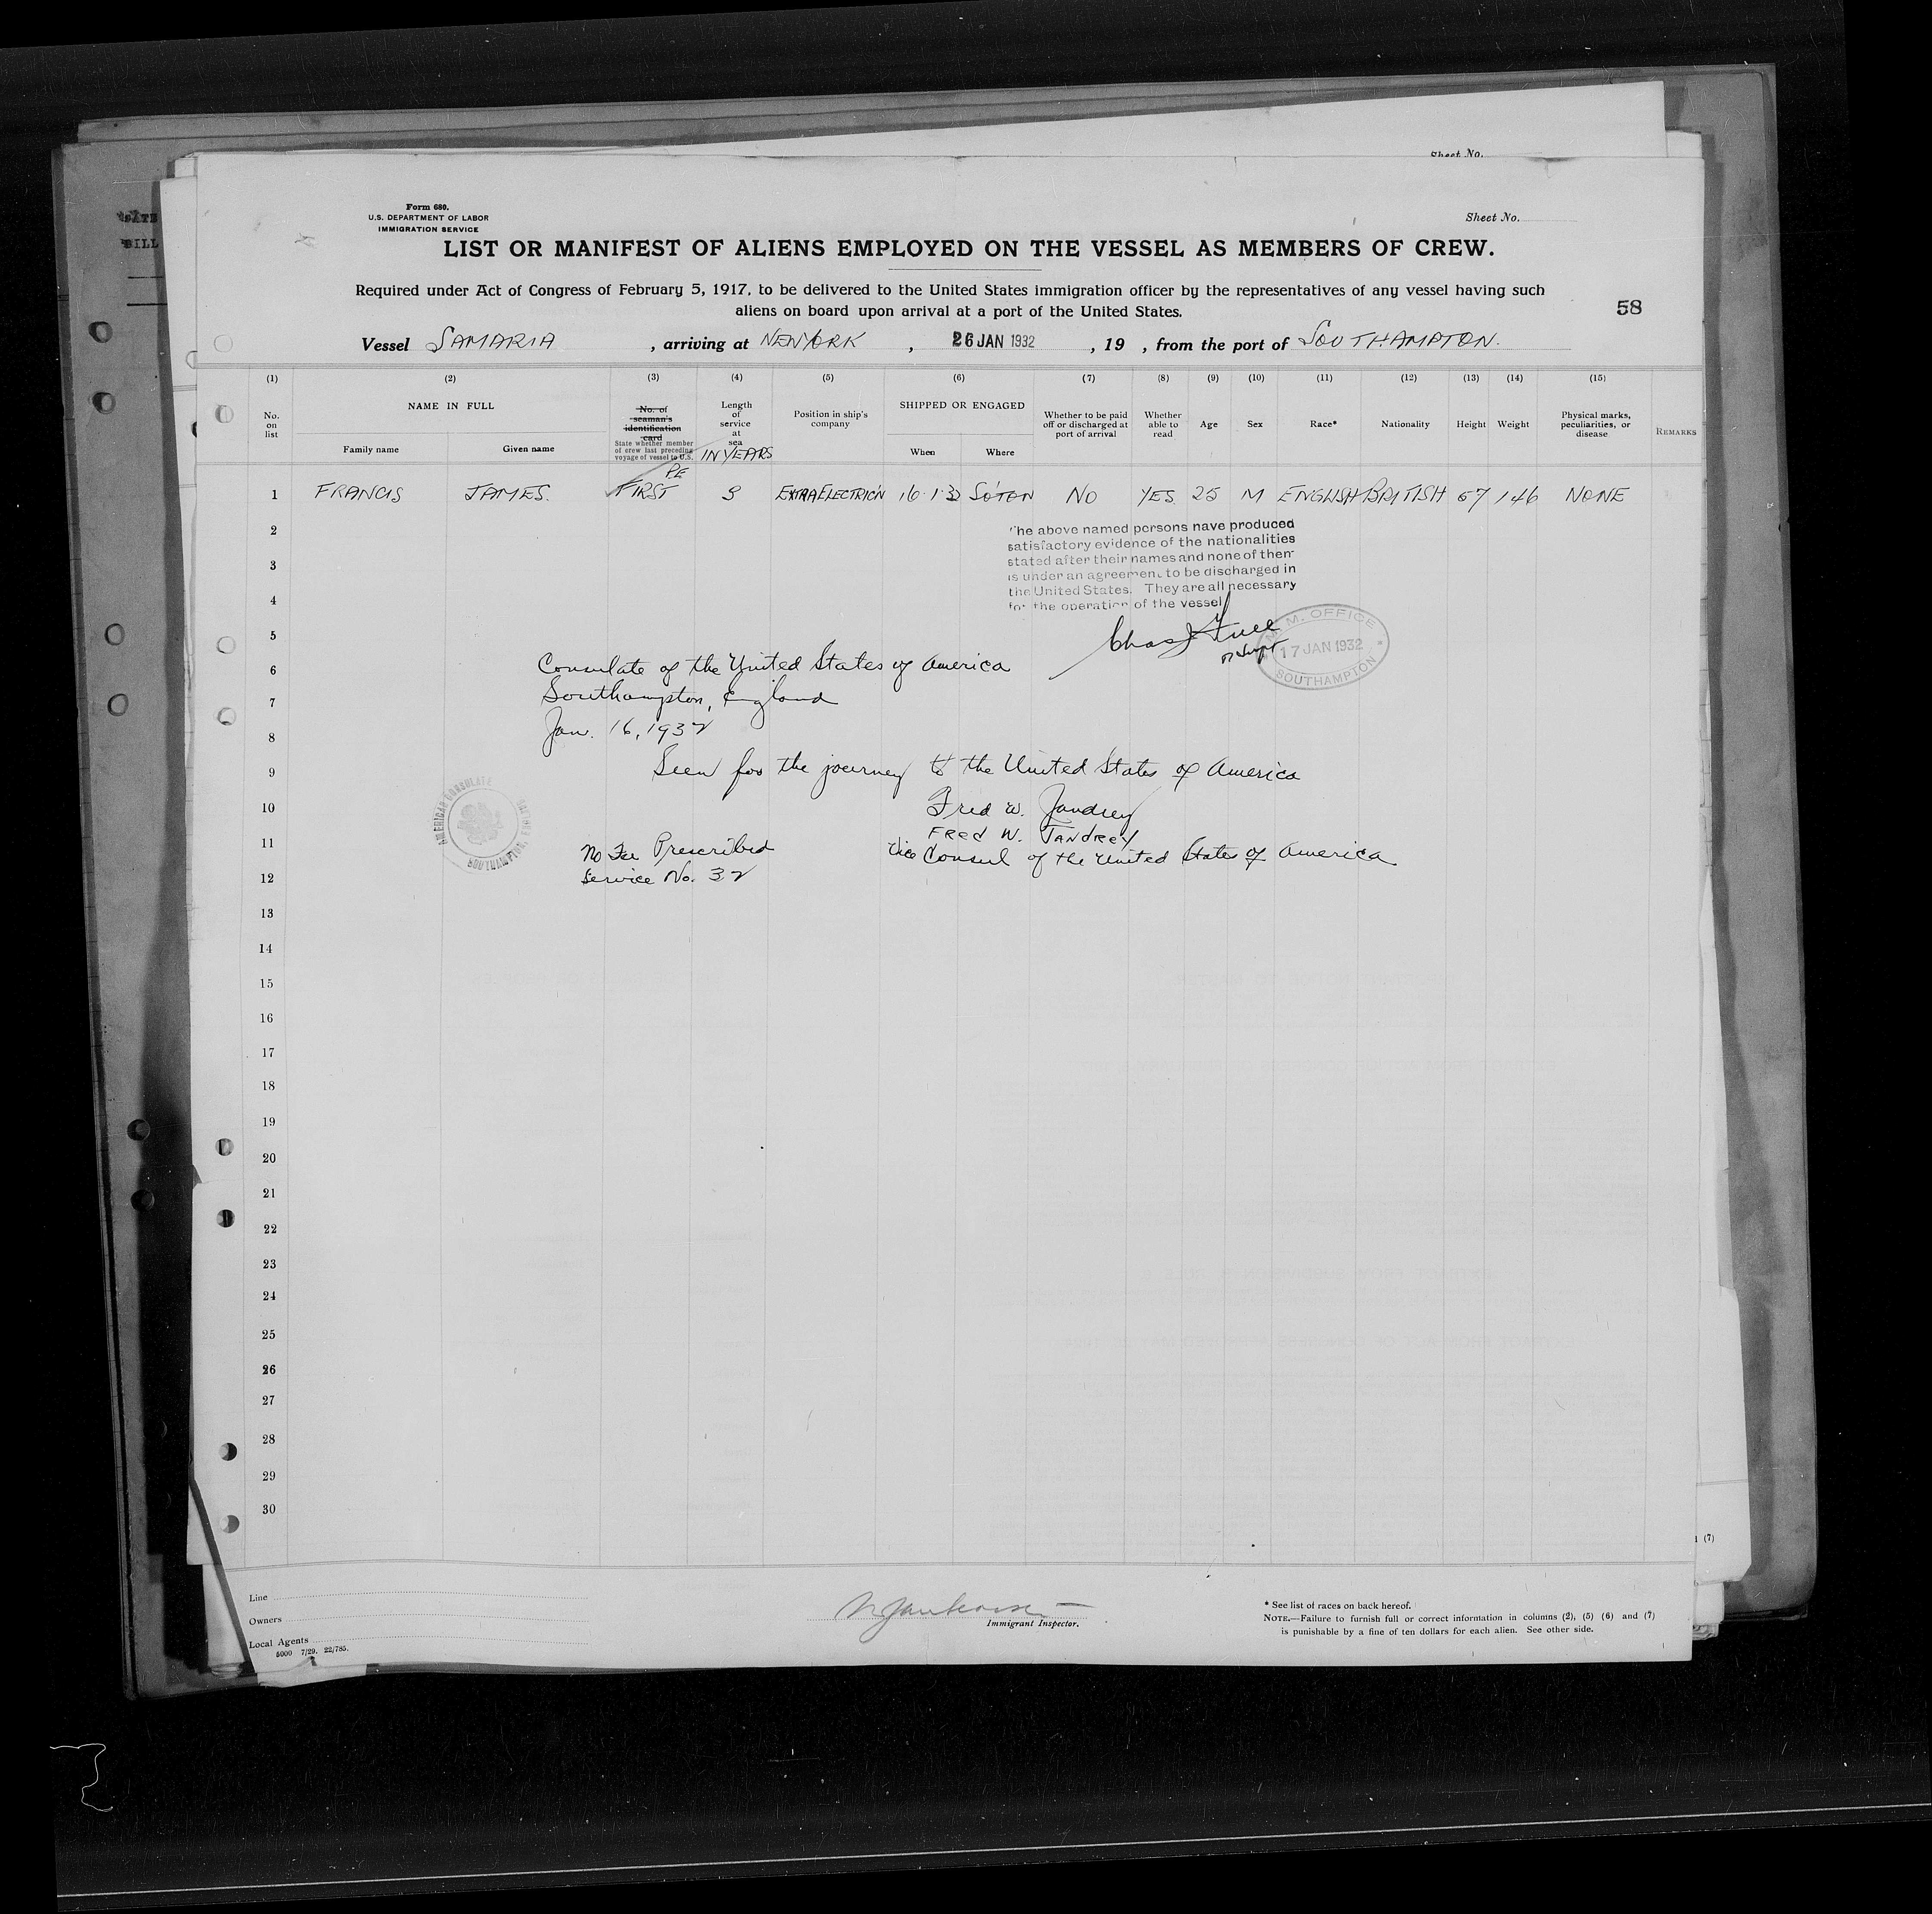 Sheet No.
Form 680.
U.S. DEPARTMENT OF LABOR
IMMIGRATION SERVICE
Sheet No.
LIST OR MANIFEST OF ALIENS EMPLOYED ON THE VESSEL AS MEMBERS OF CREW.
Required under Act of Congress of February 5, 1917, to be delivered to the United States immigration officer by the representatives of any vessel having such
aliens on board upon arrival at a port of the United States.
58
Vessel SAMARIA , arriving at NEW YORK , 26 JAN 1932 , 19 , from the port of SOUTHAMPTON.
(1) (2) (3) (4) (5) (6) (7) (8) (9) (10) (11) (12) (13) (14) (15)
No. on list
NAME IN FULL
Family name
Given name
No. of seaman's identification card
State whether member of crew last preceding voyage of vessel to U.S.
Length of service at sea
IN YEARS
Position in ship's company
SHIPPED OR ENGAGED
When
Where
Whether to be paid off or discharged at port of arrival
Whether able to read
Age
Sex
Race*
Nationality
Height
Weight
Physical marks, peculiarities, or disease
REMARKS
PE
1 FRANCIS JAMES. FIRST 3 EXTRA ELECTRIC'N 16·1·32 SO'TON NO YES 25 M ENGLISH BRITISH 67 146 NONE
2
3
4
5
6
7
8
9
10
11
12
13
14
15
16
17
18
19
20
21
22
23
24
25
26
27
28
29
30
The above named persons have produced
satisfactory evidence of the nationalities
stated after their names and none of them
is under an agreement to be discharged in
the United States. They are all necessary
for the operation of the vessel
M. M. OFFICE
17 JAN 1932
SOUTHAMPTON
Consulate of the United States of America
Southampton, England
Jan. 16, 1932
Seen for the journey to the United States of America
Fred W. Jandrey
FRED W. JANDREY
Vice Consul of the United States of America
AMERICAN CONSULATE
SOUTHAMPTON, ENGLAND
No Fee Prescribed
Service No. 32
Line
Owners
Local Agents
5000 7/29. 22/785.
Immigrant Inspector.
* See list of races on back hereof.
NOTE.—Failure to furnish full or correct information in columns (2), (5) (6) and (7)
is punishable by a fine of ten dollars for each alien. See other side.
(7)